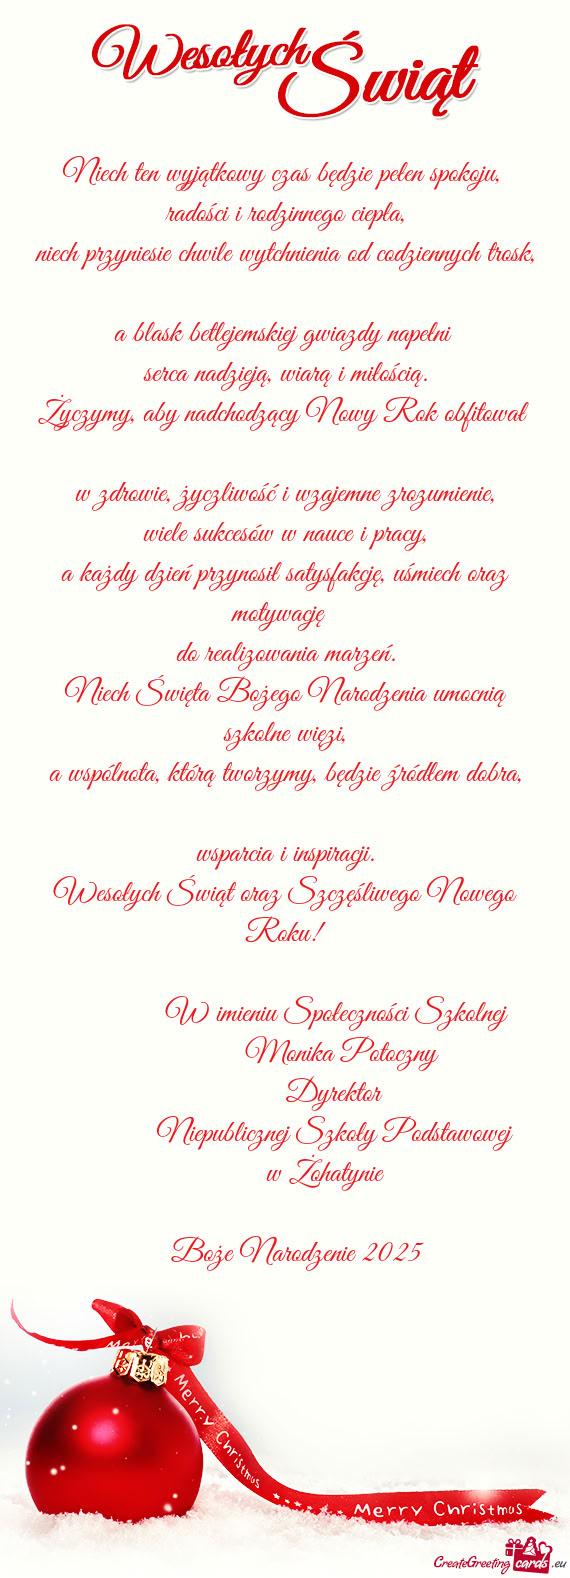 Wesołych Świąt
Niech ten wyjątkowy czas będzie pełen spokoju,
radości i rodzinnego ciepła,
niech przyniesie chwile wytchnienia od codziennych trosk,
a blask betlejemskiej gwiazdy napełni
serca nadzieją, wiarą i miłością.
Życzymy, aby nadchodzący Nowy Rok obfitował
w zdrowie, życzliwość i wzajemne zrozumienie,
wiele sukcesów w nauce i pracy,
a każdy dzień przynosił satysfakcję, uśmiech oraz
motywację
do realizowania marzeń.
Niech Święta Bożego Narodzenia umocnią
szkolne więzi,
a wspólnota, którą tworzymy, będzie źródłem dobra,
wsparcia i inspiracji.
Wesołych Świąt oraz Szczęśliwego Nowego
Roku!
W imieniu Społeczności Szkolnej
Monika Potoczny
Dyrektor
Niepublicznej Szkoły Podstawowej
w Żohatynie
Boże Narodzenie 2025
Merry Christmas
Merry Christmas
CreateGreetingcards.eu